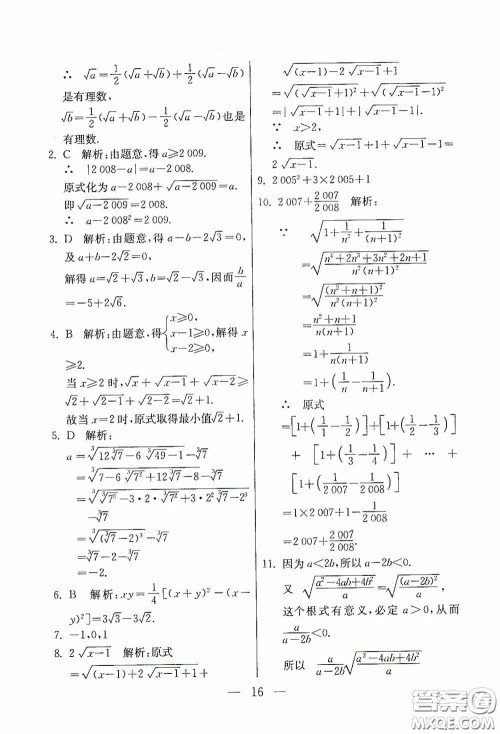 ∴ √a=1/2(√a+√b)+1/2(√a-√b)
是有理数.
√b=1/2(√a+√b)-1/2(√a-√b)也是
有理数.
2. C 解析:由题意,得 a≥2 009.
∴ |2 008-a|=a-2 008.
原式化为 a-2 008+√(a-2 009)=a.
即√(a-2 009)=2 008.
∴ a-2 008²=2 009.
3. D 解析:由题意,得 a-b-2√3=0,
及 a+b-2√2=0.
解得 a=√2+√3,b=√2-√3,因而 b/a
=-5+2√6.
4. B 解析:由题意,得{x≥0, x-1≥0, x-2≥0,解得 x
≥2.
当 x≥2 时,√x+√(x-1)+√(x-2)≥
√2+√(2-1)+√(2-2)=√2+1.
故当 x=2 时,原式取得最小值√2+1.
5. D 解析:
a=∛(12∛7-6∛49-1)-∛7
=∛(7-6∛7²+12∛7-8)-∛7
=∛(∛7³-3·2·∛7²+3·2²∛7-2³)
-∛7
=∛(∛7-2)³-∛7
=∛7-2-∛7
=-2.
6. B 解析:xy=1/4[(x+y)²-(x-
y)²]=3√3-3√2.
7. -1,0,1
8. 2√(x-1) 解析:原式
=√((x-1)+2√(x-1)+1)+
√((x-1)-2√(x-1)+1)
=√(√(x-1)+1)²+√(√(x-1)-1)²
=|√(x-1)+1|+|√(x-1)-1|.
∵ x>2,
∴ 原式=√(x-1)+1+√(x-1)-1=
2√(x-1).
9. 2 005²+3×2 005+1
10. 2 007+2 007/2 008 解析:
∵ √(1+1/n²+1/(n+1)²)
=√((n⁴+2n³+3n²+2n+1)/(n²(n+1)²))
=√((n²+n+1)²/(n²(n+1)²))
=(n²+n+1)/(n(n+1))
=1+1/(n(n+1))
=1+(1/n-1/(n+1)).
∴ 原式
=[1+(1/1-1/2)]+[1+(1/2-1/3)]
+[1+(1/3-1/4)]+…+
[1+(1/2 007-1/2 008)]
=1×2 007+2 007/2 008
=2 007+2 007/2 008.
11. 因为 a<2b,所以 a-2b<0.
又 √((a²-4ab+4b²)/a)=√((a-2b)²/a),
这个根式有意义,必定 a>0,从而
a/(a-2b)<0.
所以 a/(a-2b)√((a²-4ab+4b²)/a)
— 16 —
答案圈
MXQE.COM